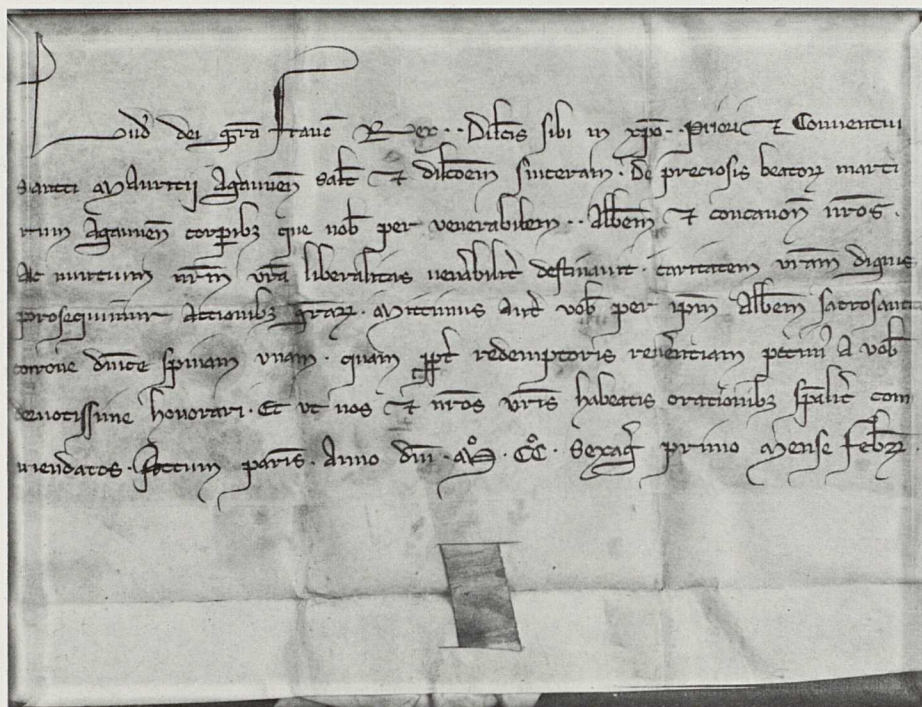 Lud̄ dei gr̄a franc̄ Rex .. Dilc̄is sibi in xp̄o .. Priori ⁊ Conventui
Sancti Mauricij Agaunen̄ salt̄ ⁊ dilc̄oem̄ sinceram. De preciosis beatoꝝ marti
rum Agaunen̄ corporibꝫ que nob̄ per venerabilem .. Abb̄em ⁊ concanon̄ nr̄os.
Ac nuncium nr̄m vr̄a liberalitas venerabilit̄ destinavit. caritatem vr̄am dignis
prosequimur Actionibꝫ gr̄aꝝ. Mittimus aut̄ vob̄ per ip̄m Abb̄em sacrosancte
corone dn̄ice spinam unam. quam ꝓpt̄ redemptoris rev̄entiam petim̄ A vob̄
devotissime honorari. Et ut nos ⁊ nr̄os vr̄is habeatis orationibꝫ sp̄alit̄ com
mendatos. Actum paris̄. Anno dn̄i. M̊. CC̊. Sexaḡ primo Mense febr̄.